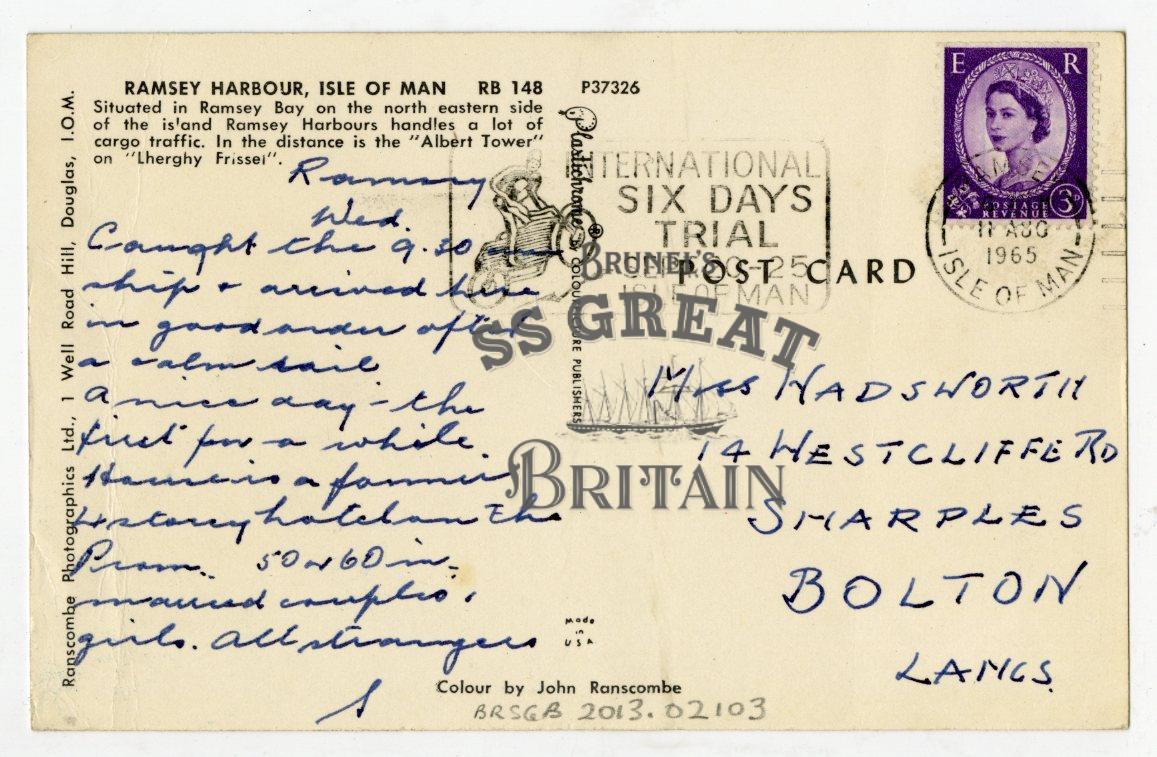 RAMSEY HARBOUR, ISLE OF MAN RB 148 P37326
Situated in Ramsey Bay on the north eastern side
of the is'and Ramsey Harbours handles a lot of
cargo traffic. In the distance is the "Albert Tower"
on "Lherghy Frissel".
Ramsey
Wed.
Caught the 9.30 am
ship & arrived here
in good order after
a calm sail
A nice day - the
first for a while.
House is a former
4 storey hotel on the
Prom. 50 or 60 in.
married couples,
girls. All strangers
S
Ranscombe Photographics Ltd., 1 Well Road Hill, Douglas, I.O.M.
Plastichrome ®
COLOURPICTURE PUBLISHERS
Made
in
USA
Colour by John Ranscombe
BRSGB 2013.02103
INTERNATIONAL
SIX DAYS
TRIAL
20-25
ISLE OF MAN
POST CARD
BRUNEL'S
SS GREAT
BRITAIN
E R
3D
POSTAGE
REVENUE
RAMSEY
11 AUG
1965
ISLE OF MAN
MISS WADSWORTH
14 WESTCLIFFE RD
SHARPLES
BOLTON
LANCS.